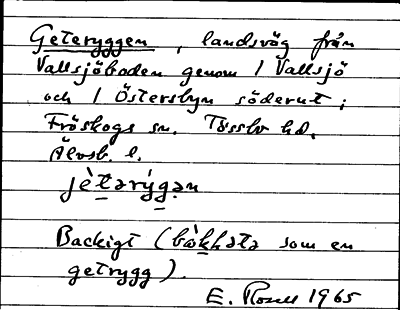 Geteryggen, landsväg från
Vallsjöboden genom 1 Vallsjö
och 1 Österbyn söderut;
Fröskogs sn. Tössbo hd.
Älvsb. l.
jètərýgən
Backigt (bàkhətə som en
getrygg).
E. Rosell 1965